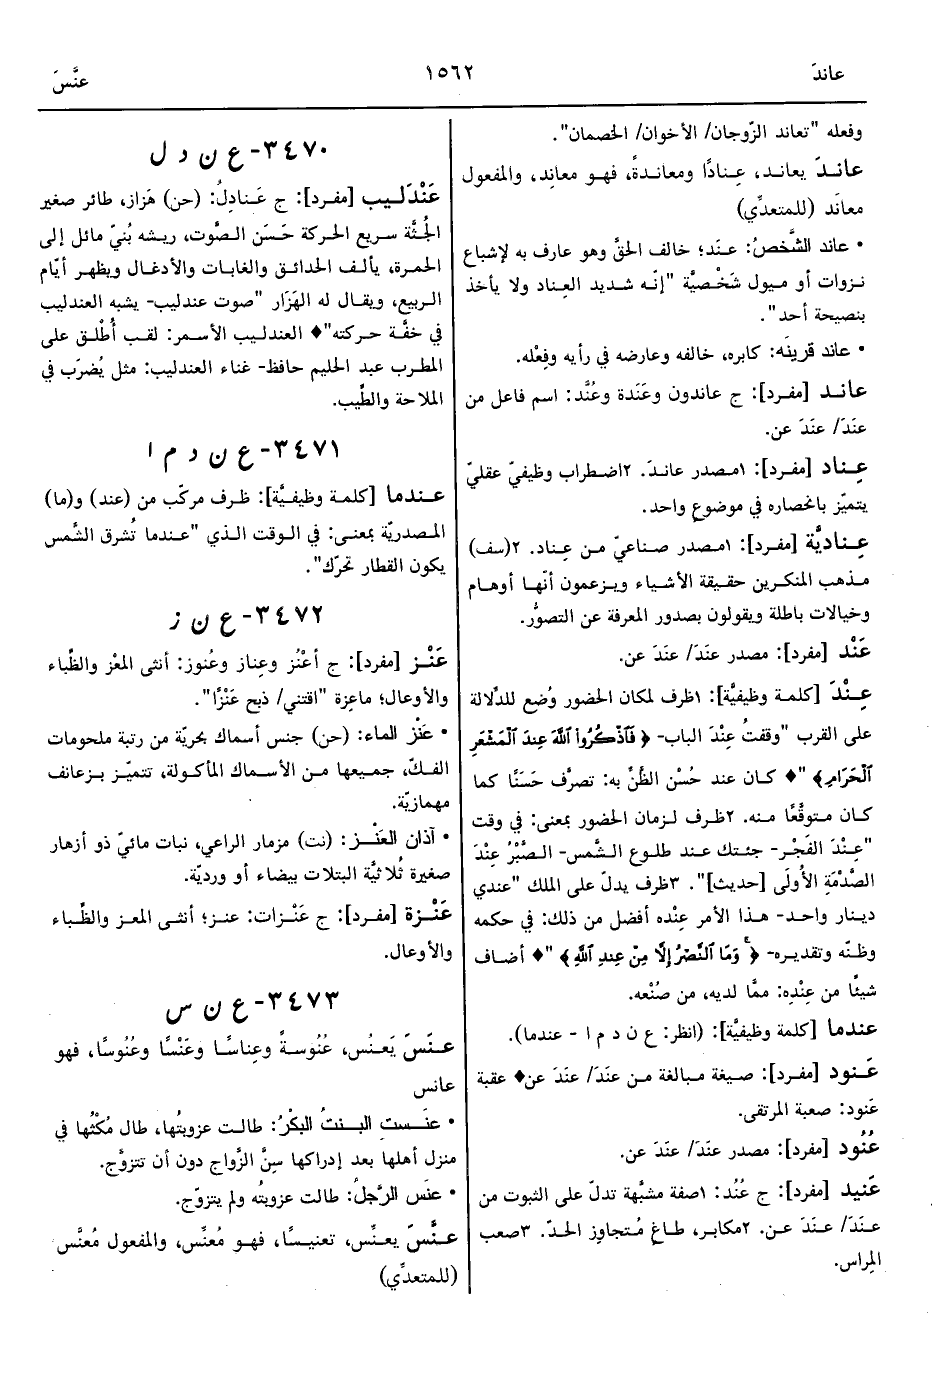 عاندَ
١٥٦٢
عنَّسَ
وفعله "تعاند الزّوجان/ الأخوان/ الخصمان".
عاندَ يعاند، عِنادًا ومعاندةً، فهو معانِد، والمفعول
معانَد (للمتعدِّي)
• عاند الشَّخصُ: عنَد؛ خالف الحقَّ وهو عارف به لإشباع
نزوات أو ميول شَخْصيَّة "إنّه شديد العِناد ولا يأخذ
بنصيحة أحد".
• عاند قرينَه: كابره، خالفه وعارضه في رأيه وفِعْله.
عانِد [مفرد]: ج عاندون وعَنَدة وعُنَّد: اسم فاعل من
عنَدَ/ عنَدَ عن.
عِناد [مفرد]: ١مصدر عاندَ. ٢اضطراب وظيفيّ عقليّ
يتميّز بانحصاره في موضوع واحد.
عِناديَّة [مفرد]: ١مصدر صناعيّ من عِناد. ٢(سف)
مذهب المنكرين حقيقة الأشياء ويزعمون أنّها أوهام
وخيالات باطلة ويقولون بصدور المعرفة عن التصوُّر.
عَنْد [مفرد]: مصدر عنَدَ/ عنَدَ عن.
عِنْدَ [كلمة وظيفيَّة]: ١ظرف لمكان الحضور وُضِع للدِّلالة
على القرب "وقفتُ عِنْدَ الباب- ﴿ فَٱذْكُرُوا ٱللَّهَ عِندَ ٱلْمَشْعَرِ
ٱلْحَرَامِ﴾ "♦ كان عند حُسْن الظَّنّ به: تصرَّف حَسَنًا كما
كان متوقَّعًا منه. ٢ظرف لزمان الحضور بمعنى: في وقت
"عِنْدَ الفَجْر- جئتك عند طلوع الشَّمس- الصَّبْرُ عِنْدَ
الصَّدْمَةِ الأُولَى [حديث]". ٣ظرف يدلّ على الملك "عندي
دينار واحد- هذا الأمر عِنْده أفضل من ذلك: في حكمه
وظنّه وتقديره- ﴿ وَمَا ٱلنَّصْرُ إِلَّا مِنْ عِندِ ٱللَّهِ ﴾ "♦ أضاف
شيئًا من عِنْدِه: ممَّا لديه، من صُنْعه.
عندما [كلمة وظيفيَّة]: (انظر: ع ن د م ا - عندما).
عَنود [مفرد]: صيغة مبالغة من عنَدَ/ عنَدَ عن♦ عقبة
عَنود: صعبة المرتقى.
عُنُود [مفرد]: مصدر عنَدَ/ عنَدَ عن.
عَنيد [مفرد]: ج عُنُد: ١صفة مشبَّهة تدلّ على الثبوت من
عنَدَ/ عنَدَ عن. ٢مكابر، طاغٍ مُتجاوِز الحدّ. ٣صعب
المِراس.
٣٤٧٠- ع ن د ل
عَنْدَليب [مفرد]: ج عَنادِلُ: (حن) هَزاز، طائر صغير
الجُثَّة سريع الحركة حَسَن الصَّوت، ريشه بُنيّ مائل إلى
الحمرة، يألف الحدائق والغابات والأدغال ويظهر أيّام
الربيع، ويقال له الهَزَار "صوت عندليب- يشبه العندليب
في خفَّة حركته"♦ العندليب الأسمر: لقب أُطْلق على
المطرب عبد الحليم حافظ- غناء العندليب: مثل يُضرَب في
الملاحة والطِّيب.
٣٤٧١- ع ن د م ا
عندما [كلمة وظيفيَّة]: ظرف مركّب من (عند) و(ما)
المصدريّة بمعنى: في الوقت الذي "عندما تُشرق الشَّمس
يكون القطار تحرّك".
٣٤٧٢- ع ن ز
عَنْز [مفرد]: ج أعْنُز وعِناز وعُنوز: أنثى المعْز والظِّباء
والأوعال؛ ماعِزة "اقتنى/ ذبح عَنْزًا".
• عَنْز الماء: (حن) جنس أسماك بحريّة من رتبة ملحومات
الفكّ، جميعها من الأسماك المأكولة، تتميّز بزعانف
مهمازيّة.
• آذان العَنْز: (نت) مزمار الراعي، نبات مائيّ ذو أزهار
صغيرة ثُلاثيَّة البتلات بيضاء أو ورديّة.
عَنْزة [مفرد]: ج عَنْزات: عنز؛ أنثى المعز والظِّباء
والأوعال.
٣٤٧٣- ع ن س
عنَسَ يَعنُس، عُنُوسةً وعِناسًا وعَنْسًا وعُنُوسًا، فهو
عانس
• عنَست البنتُ البكْرُ: طالت عزوبتُها، طال مُكْثُها في
منزل أهلها بعد إدراكها سِنَّ الزَّواج دون أن تتزوَّج.
• عنَس الرَّجلُ: طالت عزوبتُه ولم يتزوّج.
عنَّسَ يعنِّس، تعنيسًا، فهو مُعنِّس، والمفعول مُعنَّس
(للمتعدِّي)